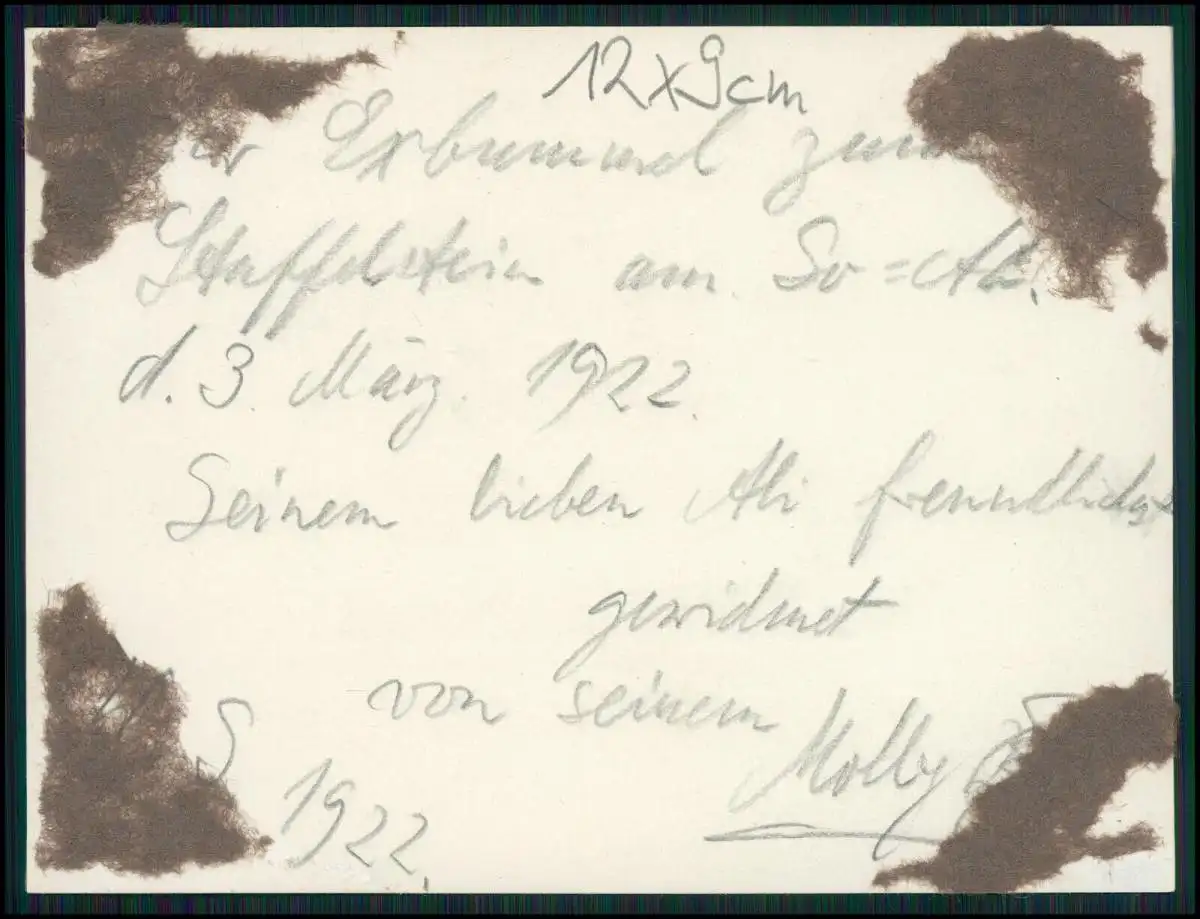 12x9cm
Exbummel zum
Staffelstein am
d. 3. März. 1922.
Seinem lieben Ali freundlichst
gewidmet
von seinem
Molly
S
1922.